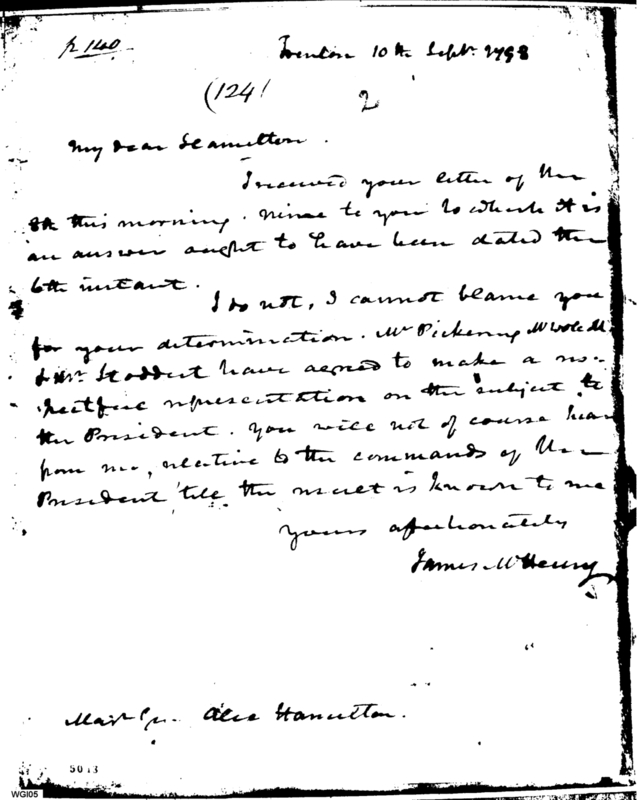 p 140
Trenton 10th Sept. 1798
(124)
2
My dear Hamilton.
I received your letter of the
8th this morning. Mine to you to which it is
an answer ought to have been dated the
6th instant.
I do not, I cannot blame you
for your determination. Mr Pickering Mr Wolcott
& Mr. Stoddert have agreed to make a res-
pectful representation on the subject to
the President. You will not of course hear
from me, relative to the commands of the
President till the result is known to me
yours affectionately
James McHenry
Majr Gen. Alex Hamilton.
5013
WGI05